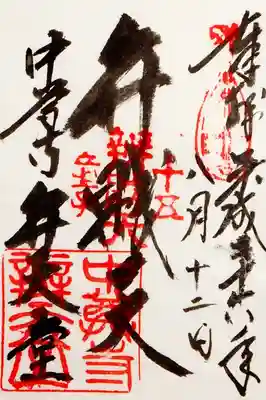 奉拝 平成二十六年
八月十二日
弁財天
中尊寺 弁天堂
十五